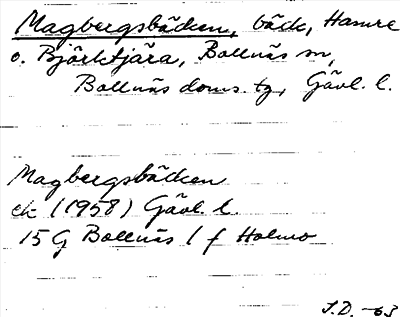 Magbergsbäcken, bäck, Hamre
o. Björktjära, Bollnäs sn,
Bollnäs doms. tg, Gävl. l.
Magbergsbäcken
ek (1958) Gävl. l.
15 G Bollnäs l f Holmo
J.D. -63